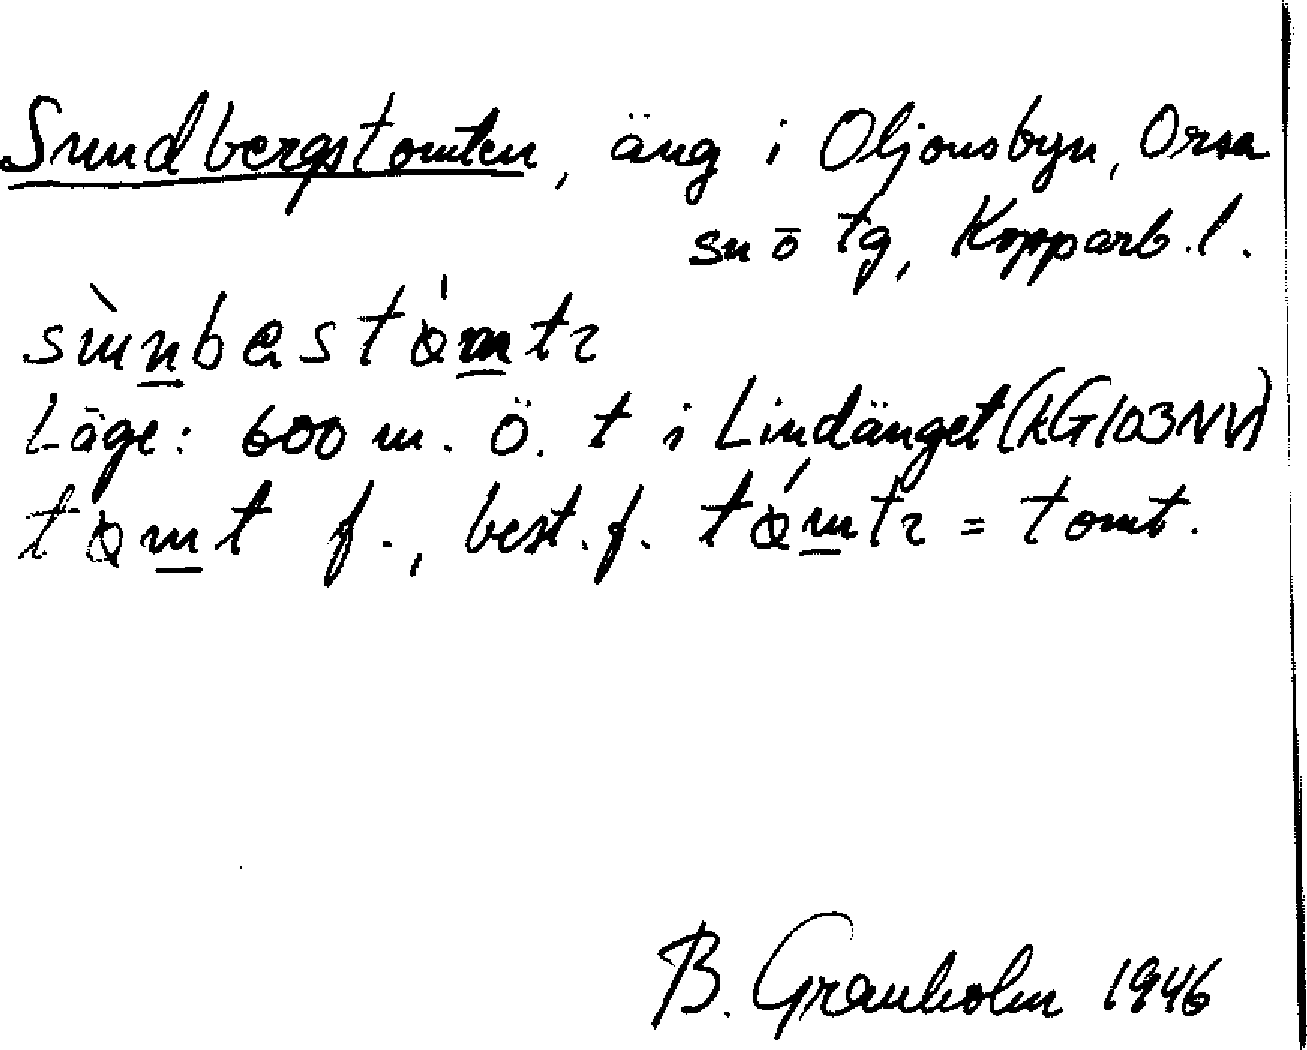 Sundbergstomten, äng i Oljonsbyn, Orsa
sn o tg, Kopparb. l.
Läge: 600 m. Ö. t i Lindänget (kG103NV)
f., best. f. = tomt.
B. Granholm 1946